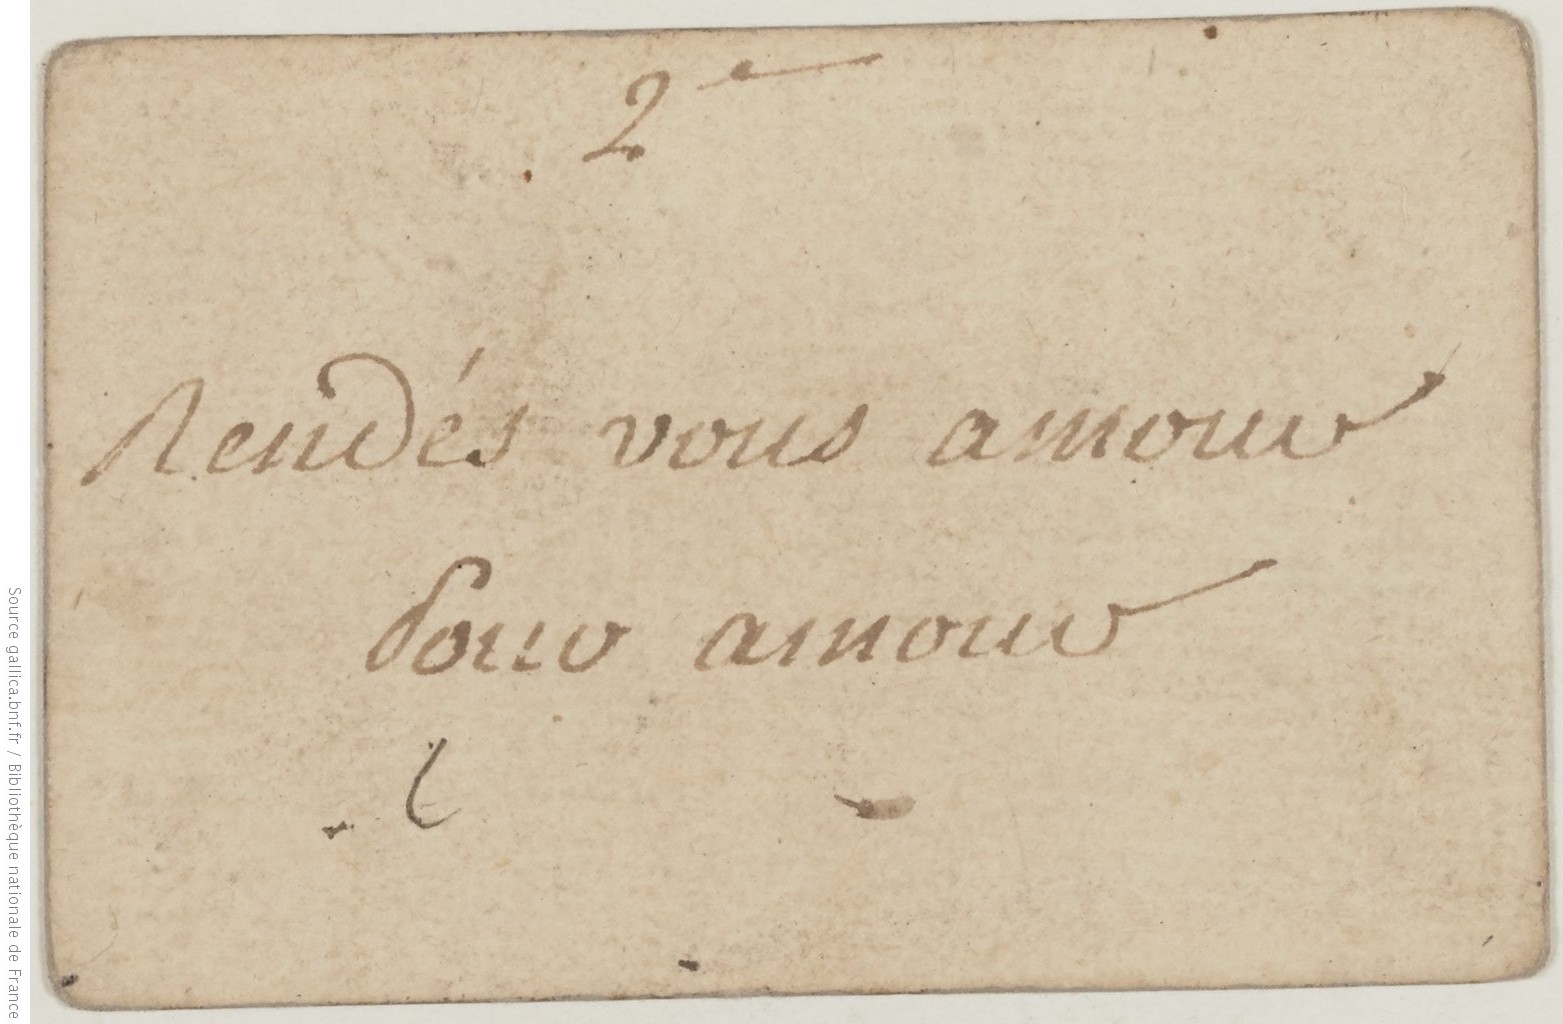 2e
Rendés vous amour
pour amour
Source gallica.bnf.fr / Bibliothèque nationale de France